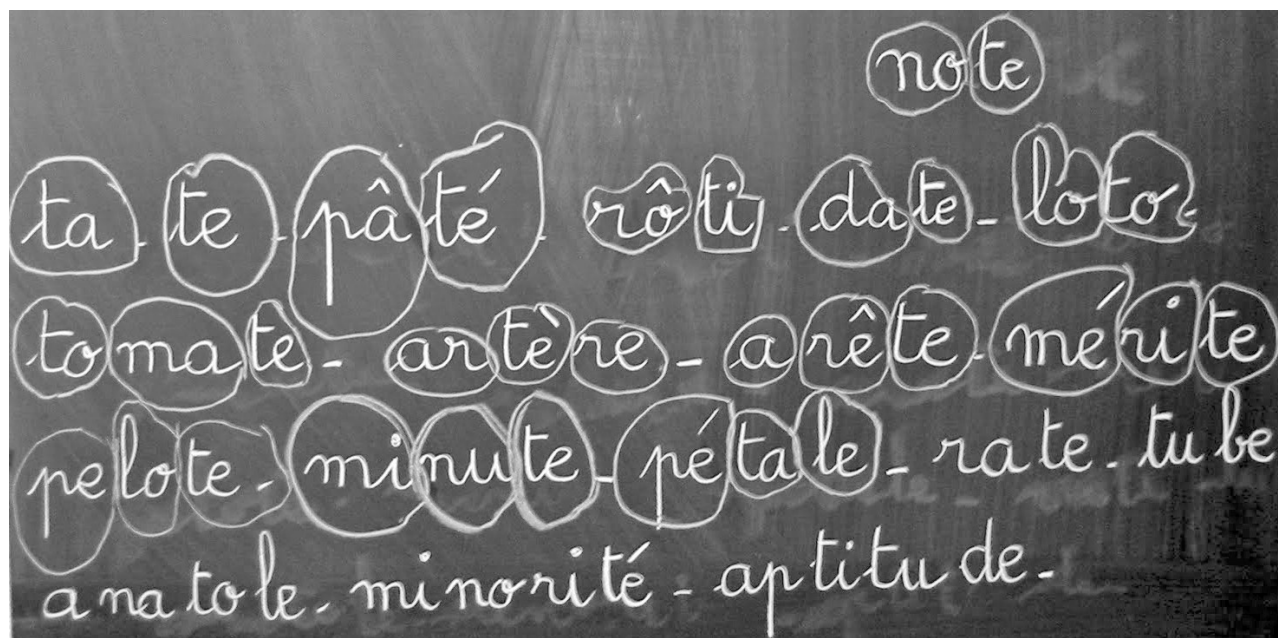 note
ta - te - pâté - rôti - date - loto -
tomate - artère - arête - mérite
pelote - minute - pétale - rate - tube
anatole - minorité - aptitude -